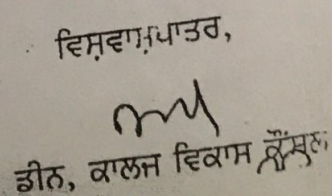 ਵਿਸ਼ਵਾਸ਼ਪਾਤਰ,
ਡੀਨ, ਕਾਲਜ ਵਿਕਾਸ ਕੌਂਸਲ,